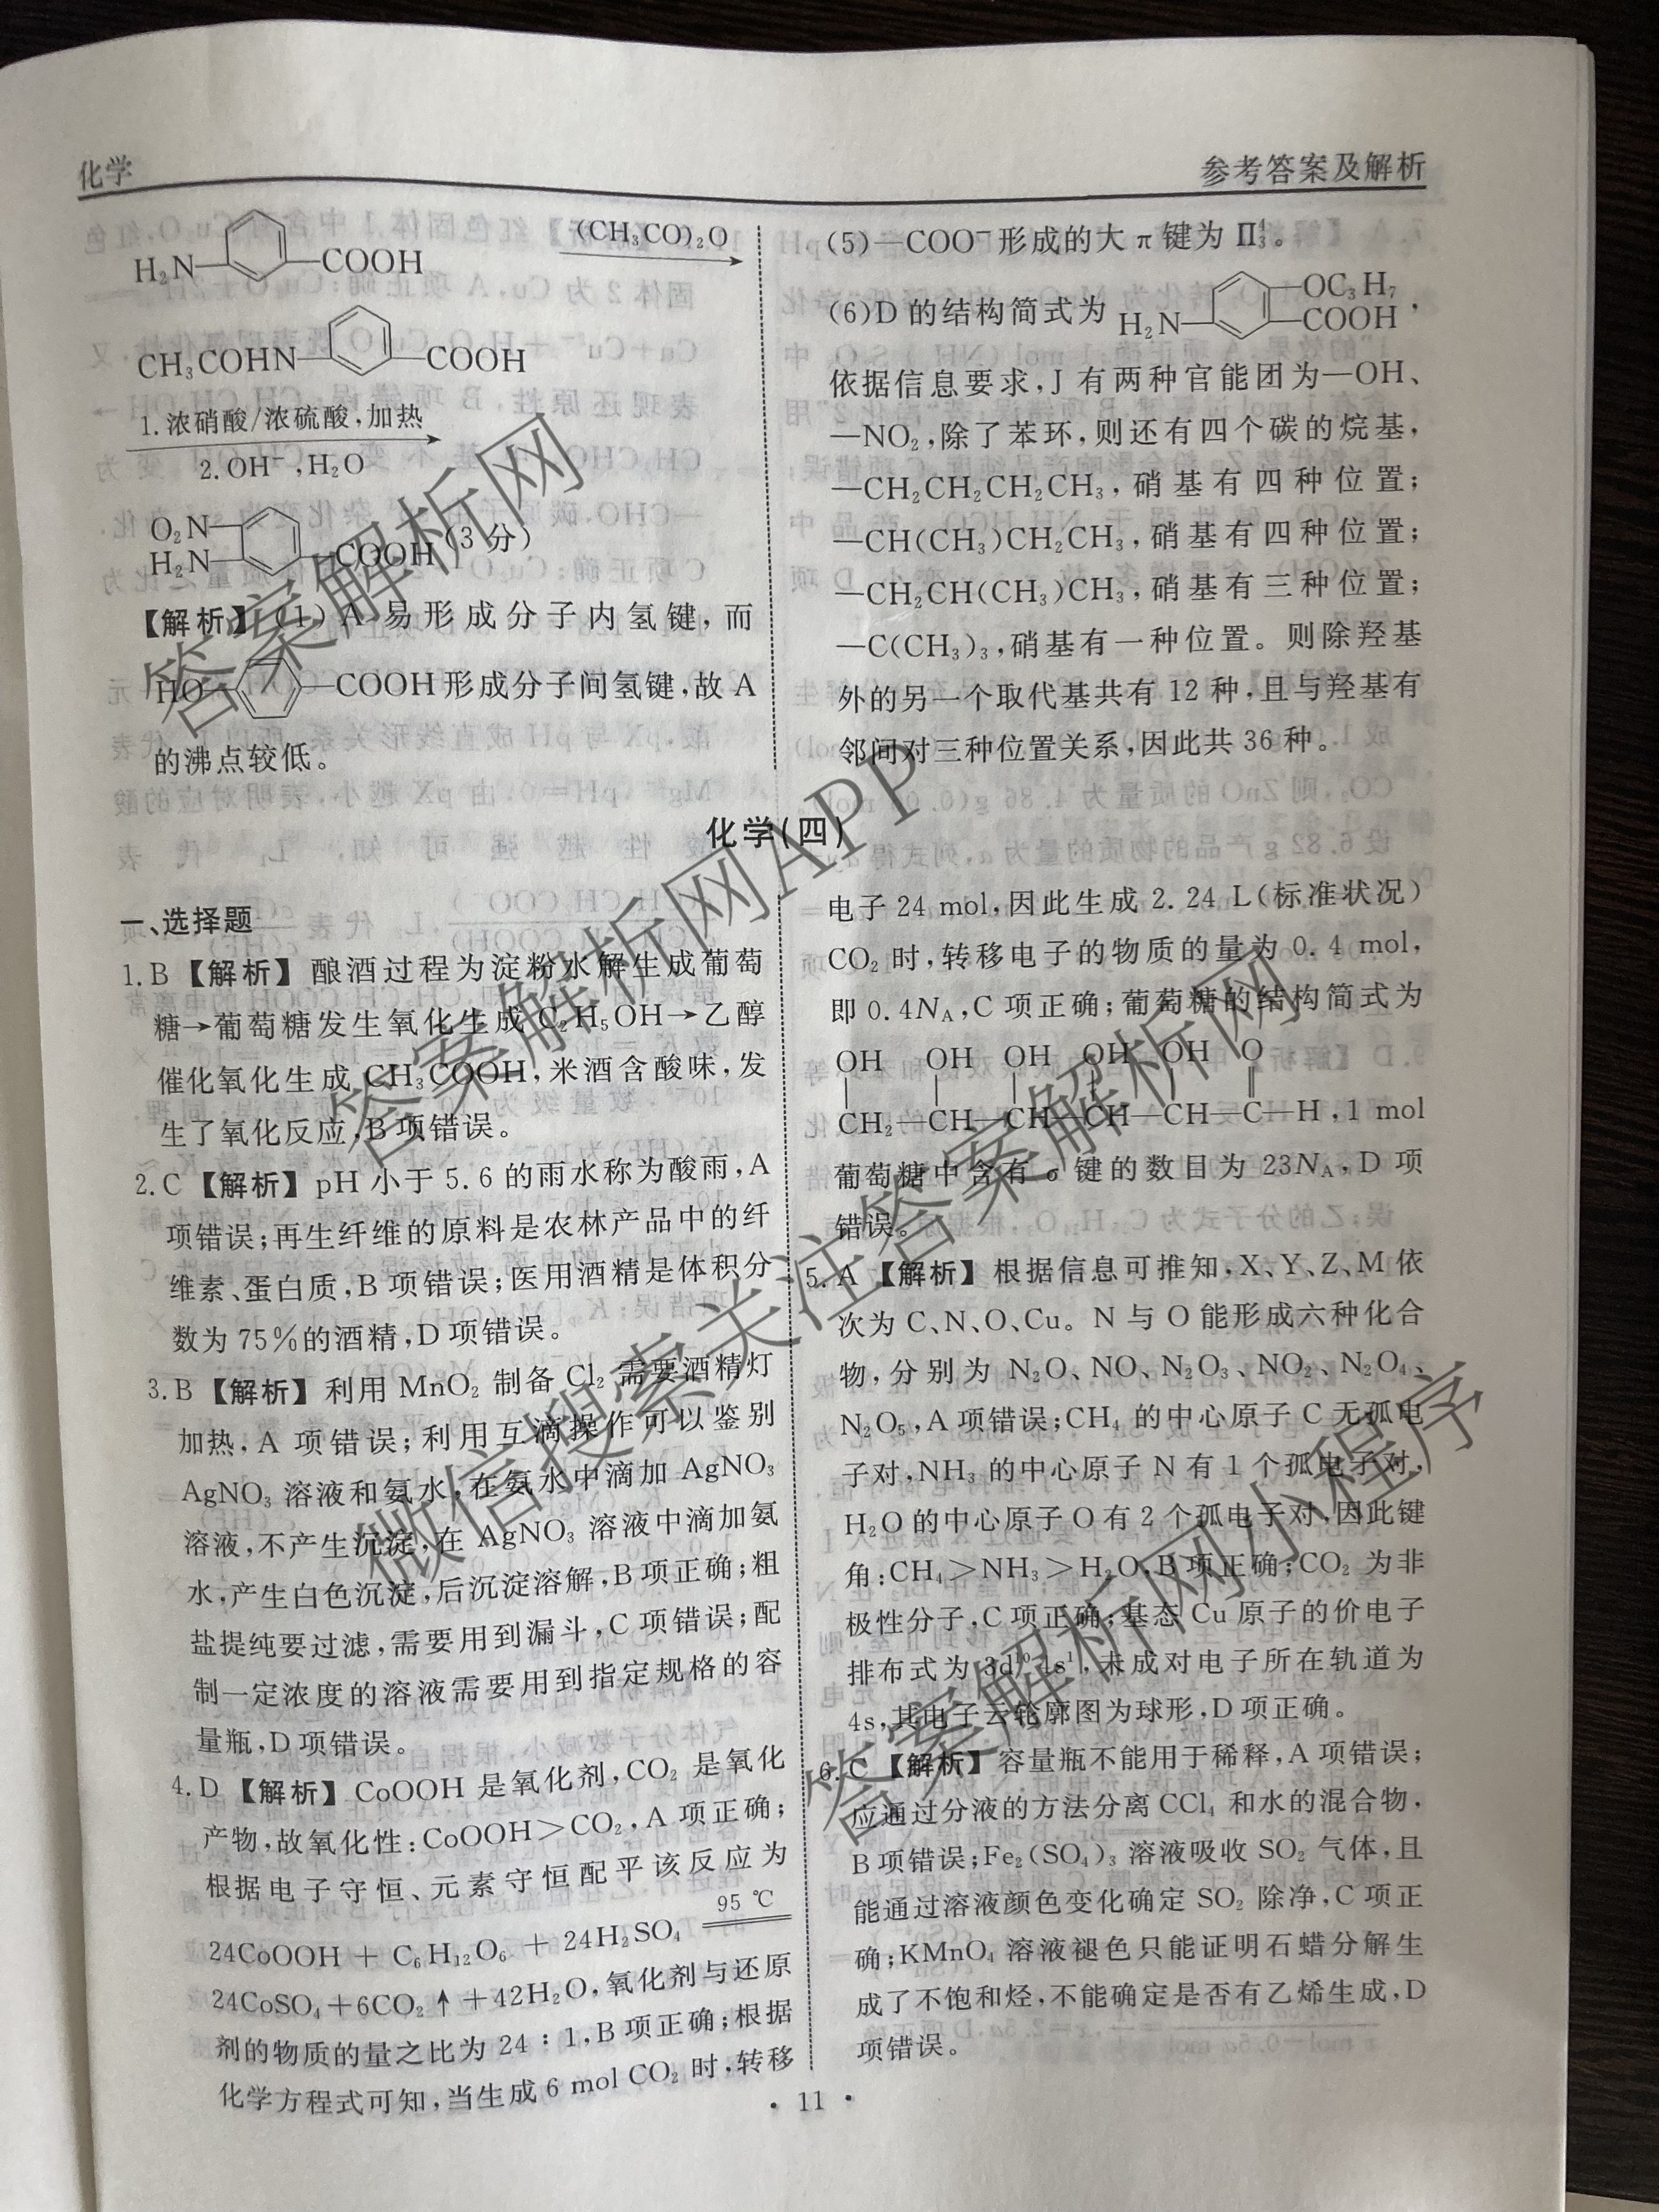 化学
参考答案及解析
H₂N— —COOH (CH₃CO)₂O
CH₃COHN— —COOH
1.浓硝酸/浓硫酸,加热
2.OH⁻,H₂O
O₂N—
H₂N— —COOH(3分)
【解析】(1)A易形成分子内氢键,而
HO— —COOH形成分子间氢键,故A
的沸点较低。
(5)—COO⁻形成的大π键为Π₃⁴。
(6)D的结构简式为 H₂N— —OC₃H₇ —COOH,
依据信息要求,J有两种官能团为—OH、
—NO₂,除了苯环,则还有四个碳的烷基,
—CH₂CH₂CH₂CH₃,硝基有四种位置;
—CH(CH₃)CH₂CH₃,硝基有四种位置;
—CH₂CH(CH₃)CH₃,硝基有三种位置;
—C(CH₃)₃,硝基有一种位置。则除羟基
外的另一个取代基共有12种,且与羟基有
邻间对三种位置关系,因此共36种。
化学(四)
一、选择题
1.B【解析】酿酒过程为淀粉水解生成葡萄
糖→葡萄糖发生氧化生成C₂H₅OH→乙醇
催化氧化生成CH₃COOH,米酒含酸味,发
生了氧化反应,B项错误。
2.C【解析】pH小于5.6的雨水称为酸雨,A
项错误;再生纤维的原料是农林产品中的纤
维素、蛋白质,B项错误;医用酒精是体积分
数为75%的酒精,D项错误。
3.B【解析】利用MnO₂制备Cl₂需要酒精灯
加热,A项错误;利用互滴操作可以鉴别
AgNO₃溶液和氨水,在氨水中滴加AgNO₃
溶液,不产生沉淀,在AgNO₃溶液中滴加氨
水,产生白色沉淀,后沉淀溶解,B项正确;粗
盐提纯要过滤,需要用到漏斗,C项错误;配
制一定浓度的溶液需要用到指定规格的容
量瓶,D项错误。
4.D【解析】CoOOH是氧化剂,CO₂是氧化
产物,故氧化性:CoOOH>CO₂,A项正确;
根据电子守恒、元素守恒配平该反应为
24CoOOH + C₆H₁₂O₆ + 24H₂SO₄ 95 ℃
24CoSO₄+6CO₂↑+42H₂O,氧化剂与还原
剂的物质的量之比为24∶1,B项正确;根据
化学方程式可知,当生成6 mol CO₂时,转移
电子24 mol,因此生成2.24 L(标准状况)
CO₂时,转移电子的物质的量为0.4 mol,
即0.4Nᴀ,C项正确;葡萄糖的结构简式为
OH OH OH OH OH O
CH₂—CH—CH—CH—CH—C—H,1 mol
葡萄糖中含有σ键的数目为23Nᴀ,D项
错误。
5.A【解析】根据信息可推知,X、Y、Z、M依
次为C、N、O、Cu。N与O能形成六种化合
物,分别为N₂O、NO、N₂O₃、NO₂、N₂O₄、
N₂O₅,A项错误;CH₄的中心原子C无孤电
子对,NH₃的中心原子N有1个孤电子对,
H₂O的中心原子O有2个孤电子对,因此键
角:CH₄>NH₃>H₂O,B项正确;CO₂为非
极性分子,C项正确;基态Cu原子的价电子
排布式为3d¹⁰4s¹,未成对电子所在轨道为
4s,其电子云轮廓图为球形,D项正确。
6.C【解析】容量瓶不能用于稀释,A项错误;
应通过分液的方法分离CCl₄和水的混合物,
B项错误;Fe₂(SO₄)₃溶液吸收SO₂气体,且
能通过溶液颜色变化确定SO₂除净,C项正
确;KMnO₄溶液褪色只能证明石蜡分解生
成了不饱和烃,不能确定是否有乙烯生成,D
项错误。
· 11 ·
答案解析网
答案解析网APP
微信搜索关注答案解析网
答案解析网小程序